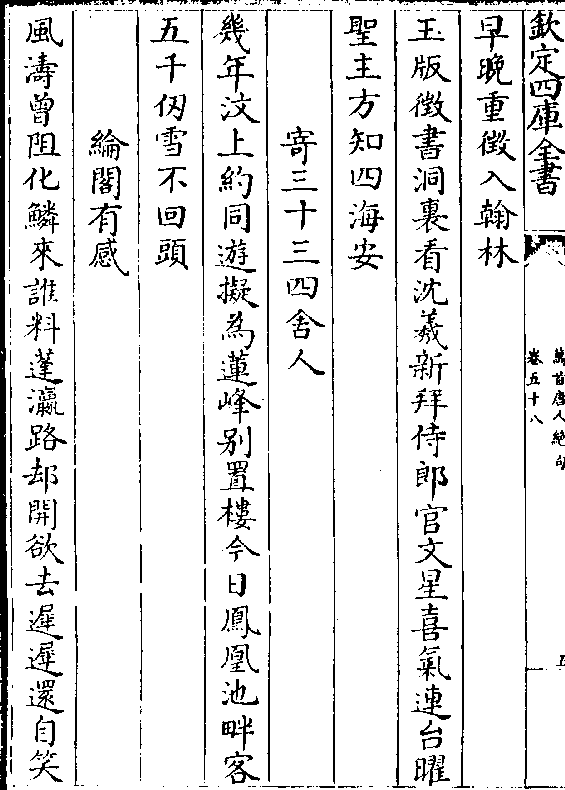 欽定四庫全書
萬首唐人絶句
卷五十八
五
早晚重徴入翰林
玉版徴書洞裏看沈羲新拜侍郎官文星喜氣連台曜
聖主方知四海安
寄三十三四舍人
幾年汶上約同遊擬為蓮峰别置樓今日鳳凰池畔客
五千仭雪不回頭
綸閣有感
風濤曾阻化鱗來誰料蓬瀛路却開欲去遲遲還自笑